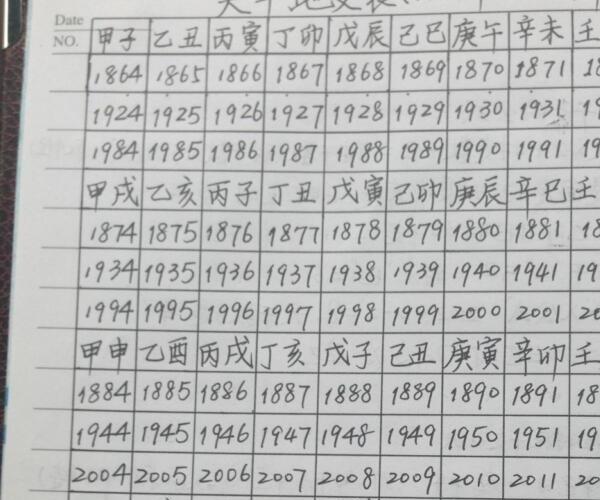 Date
NO.
甲子 乙丑 丙寅 丁卯 戊辰 己巳 庚午 辛未 壬
1864 1865 1866 1867 1868 1869 1870 1871
1924 1925 1926 1927 1928 1929 1930 1931
1984 1985 1986 1987 1988 1989 1990 1991
甲戌 乙亥 丙子 丁丑 戊寅 己卯 庚辰 辛巳 壬
1874 1875 1876 1877 1878 1879 1880 1881
1934 1935 1936 1937 1938 1939 1940 1941
1994 1995 1996 1997 1998 1999 2000 2001
甲申 乙酉 丙戌 丁亥 戊子 己丑 庚寅 辛卯 壬
1884 1885 1886 1887 1888 1889 1890 1891
1944 1945 1946 1947 1948 1949 1950 1951
2004 2005 2006 2007 2008 2009 2010 2011